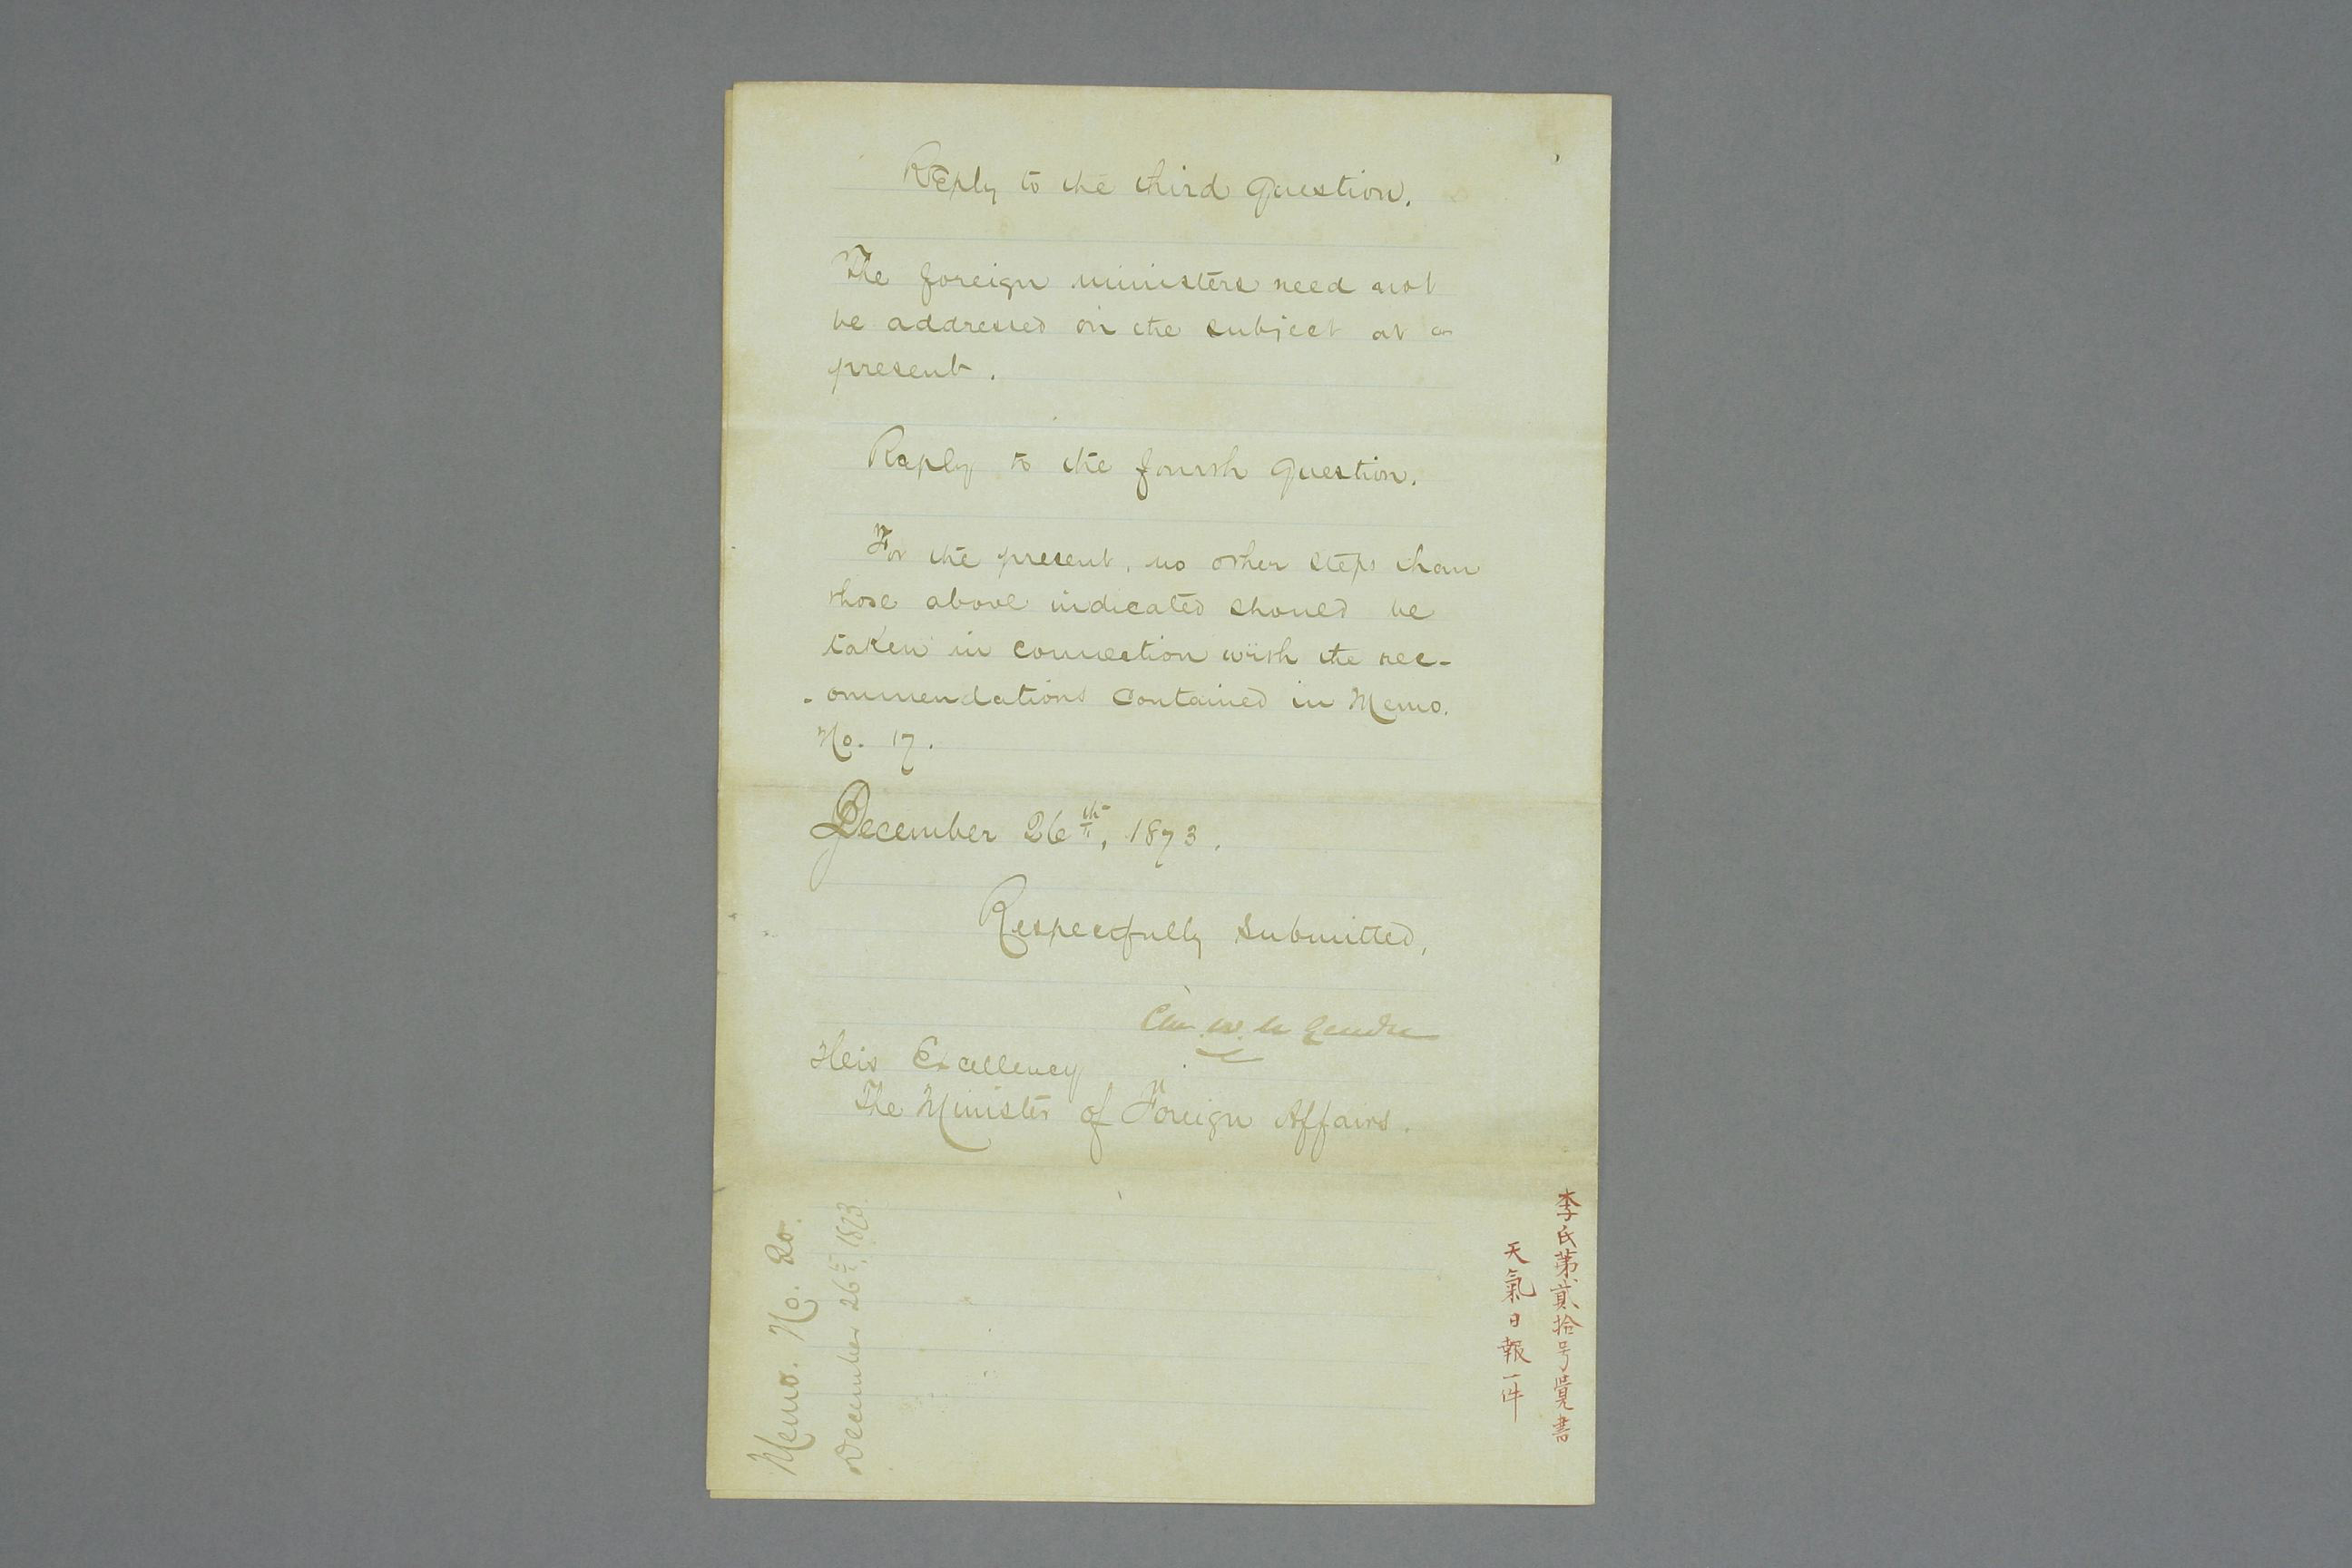 Reply to the third question.
The foreign ministers need not
be addressed on the subject at
present.
Reply to the fourth question.
For the present, no other steps than
those above indicated should be
taken in connection with the rec-
-ommendations contained in Memo.
No. 17.
December 26th, 1873.
Respectfully submitted,
Cha. W. Le Gendre
His Excellency
The Minister of Foreign Affairs.
Memo. No. 20.
December 26th, 1873
李氏第貳拾号覺書
天氣日報一件